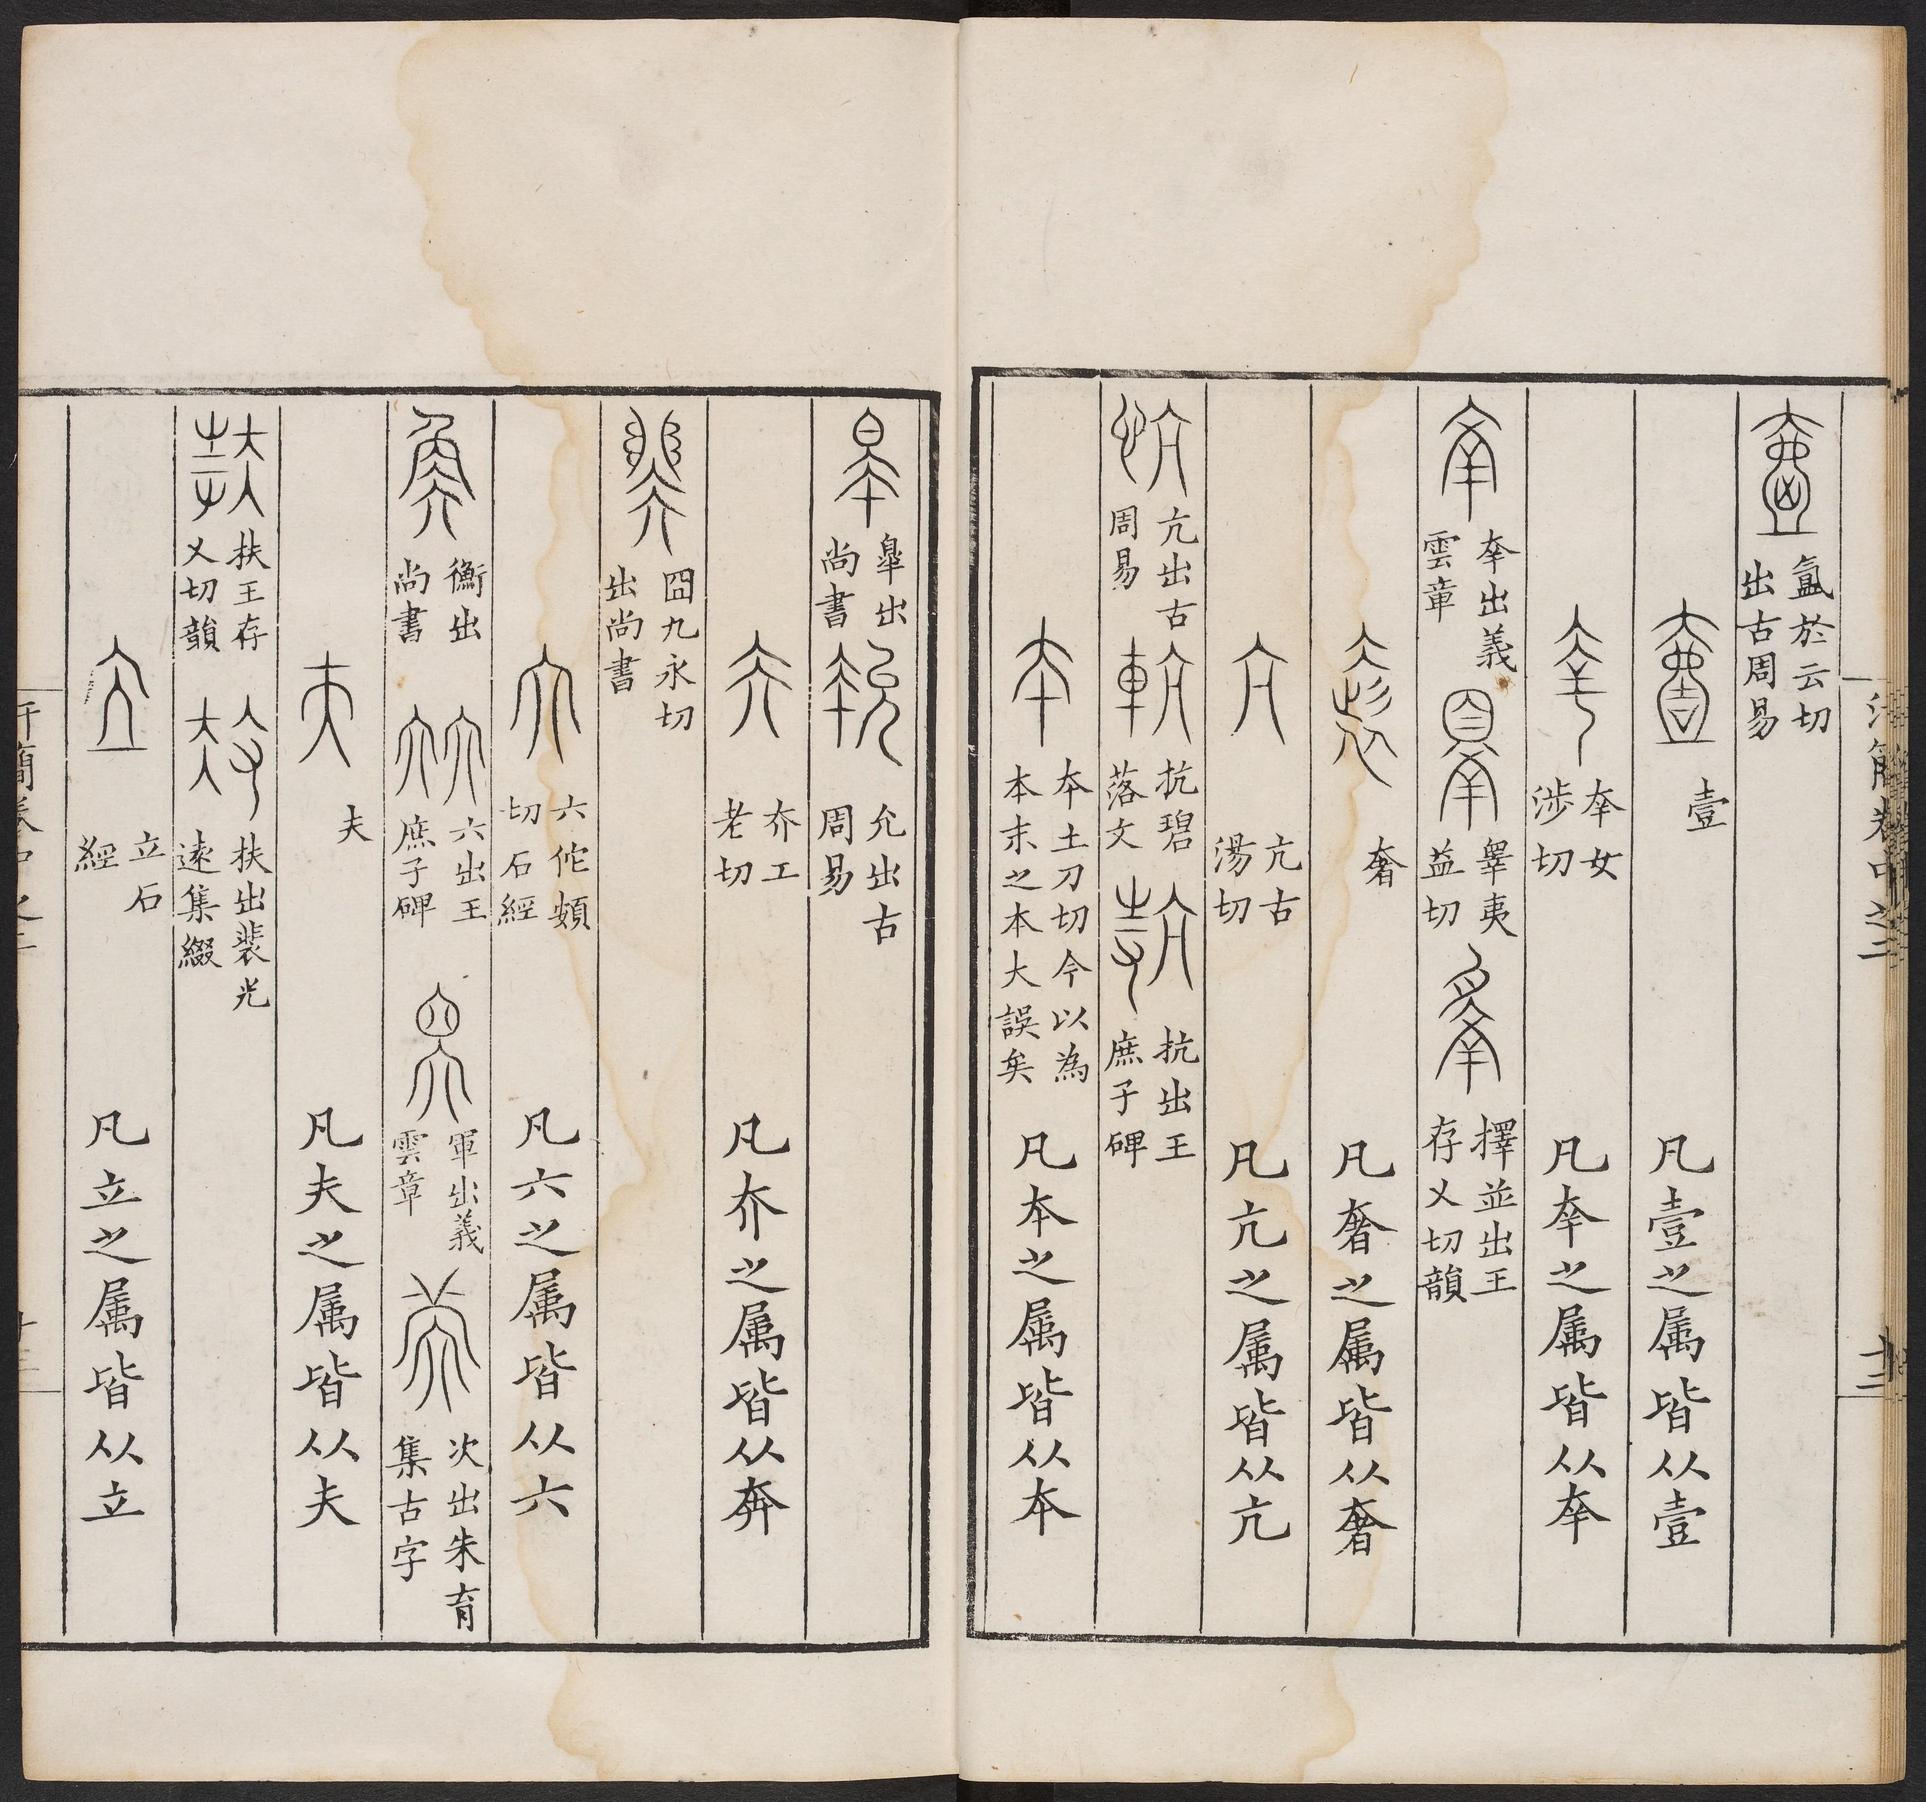 汗簡卷中之二 十二
氲於云切出古周易
壹 凡壹之属皆从壹
㚔女涉切 凡㚔之属皆从㚔
㚔出義雲章 睪夷益切 擇並出王存乂切韻
奢 凡奢之属皆从奢
亢古湯切 凡亢之属皆从亢
亢出古周易 抗碧落文 抗出王庶子碑
夲土刀切今以為本末之本大誤矣 凡夲之属皆从夲
皐出尚書 允出古周易
夰工老切 凡夰之属皆从奔
囧九永切出尚書
六佗頰切石經 凡六之属皆从六
衡出尚書 六出王庶子碑 軍出義雲章 次出朱育集古字
夫 凡夫之属皆从夫
扶王存乂切韻 扶出裴光遠集綴
立石經 凡立之属皆从立